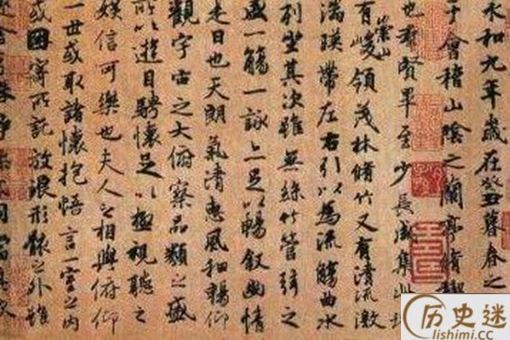 永和九年歲在癸丑暮春之
于會稽山陰之蘭亭脩稧
也群賢畢至少長咸集此
有崇山峻領茂林脩竹又有清流激
湍暎帶左右引以為流觴曲水
列坐其次雖無絲竹管弦之
盛一觴一詠亦足以暢敘幽情
是日也天朗氣清惠風和暢仰
觀宇宙之大俯察品類之盛
所以遊目騁懷足以極視聽之
娛信可樂也夫人之相與俯仰
一世或取諸懷抱悟言一室之內
或因寄所託放浪形骸之外雖
历史迷
lishimi.cc